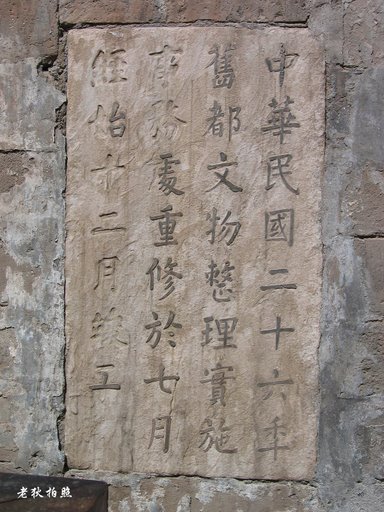 中華民國二十六年
舊都文物整理實施
事務處重修於七月
經始十二月竣工
老狄拍照